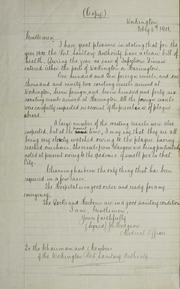 (Copy)
Workington
Febry 8th 1901
Gentlemen,
I have great pleasure in stating that for the
year 1900 the Port Sanitary Authority have a clean bill of
health. During the year no case of Infectious Disease
entered either the port of Workington or Harrington.
One hundred and ten foreign vessels, and one
thousand and ninety two coasting vessels arrived at
Workington,
foreign and
hundred and forty one
coasting vessels arrived at Harrington. All the foreign vessels
were carefully inspected on account of the prevalence of plague
abroad.
A large number of the coasting vessels were also
inspected, but at the present time, I may say that they are all
being very closely watched owing to the plague having
reached our shores. The vessels from Glasgow are of course
noted at present owing to the
of small pox in that
City.
Cleaning has been the only thing that has been
required in a few cases.
The hospital is in good order and ready for any
emergency.
The docks and harbour are in a good sanitary condition.
I am, Gentlemen,
Yours faithfully
(signed)
Medical Officer
To the Chairman and Members
of the Workington Port Sanitary Authority.